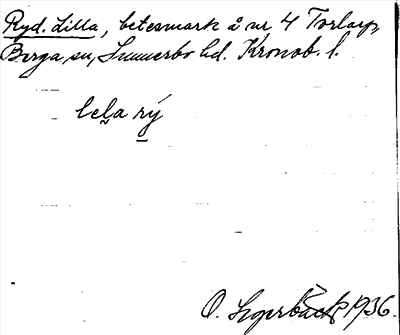 Ryd. Lilla, betesmark å nr 4 Torlarp,
Berga sn, Sunnerbo hd. Kronob. l.
lela rý
O. 1936.